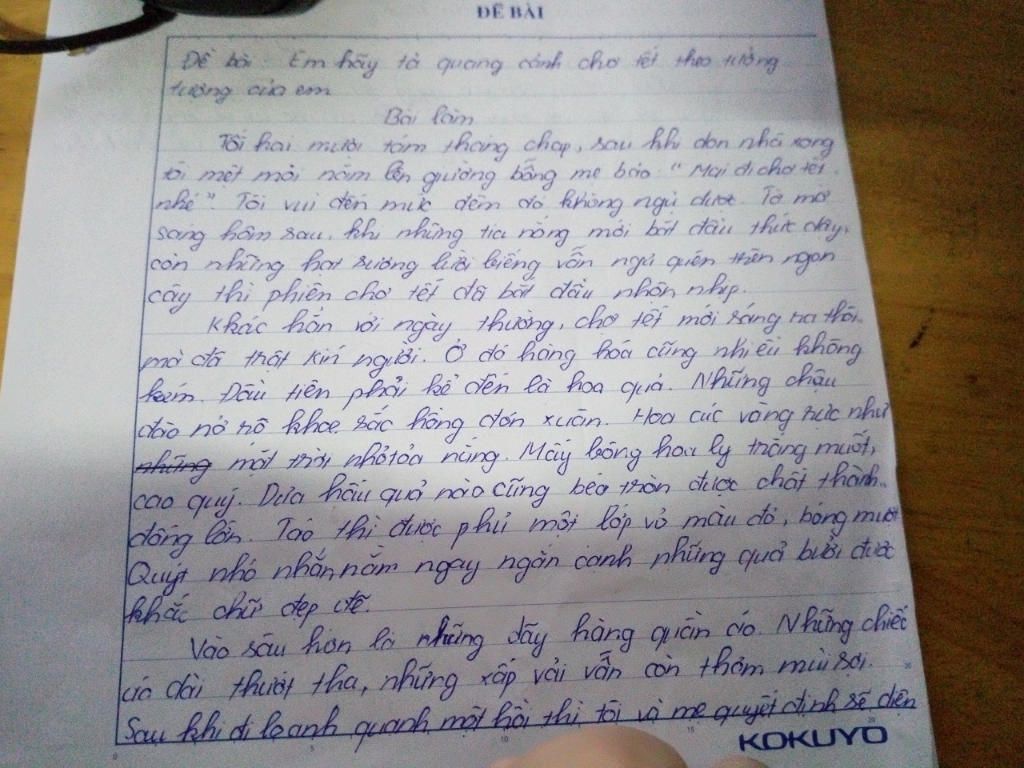 ĐỀ BÀI
Đề bài: Em hãy tả quang cảnh chợ tết theo tưởng
tượng của em
Bài làm
Tối hai mươi tám tháng chạp, sau khi dọn nhà xong
tôi mệt mỏi nằm lên giường bỗng mẹ bảo: "Mai đi chợ tết
nhé". Tôi vui đến mức đêm đó không ngủ được. Tờ mờ
sáng hôm sau, khi những tia nắng mới bắt đầu thức dậy,
còn những hạt sương lười biếng vẫn ngủ quên trên ngọn
cây thì phiên chợ tết đã bắt đầu nhộn nhịp.
Khác hẳn với ngày thường, chợ tết mới sáng ra thôi
mà đã trật kín người. Ở đó hàng hóa cũng nhiều không
kém. Đầu tiên phải kể đến là hoa quả. Những chậu
đào nở rộ khoe sắc hồng đón xuân. Hoa cúc vàng rực như
những mặt trời nhỏ tỏa nắng. Mấy bông hoa ly trắng muốt,
cao quý. Dưa hấu quả nào cũng béo tròn được chất thành
đống lớn. Táo thì được phủ một lớp vỏ màu đỏ, bóng mượt
Quýt nhỏ nhắn nằm ngay ngắn cạnh những quả bưởi được
khắc chữ đẹp đẽ.
Vào sâu hơn là những dãy hàng quần áo. Những chiếc
áo dài thướt tha, những xấp vải vẫn còn thơm mùi sợi.
Sau khi đi loanh quanh một hồi thì tôi và mẹ quyết định sẽ diện
KOKUYO
0 5 10 15 20